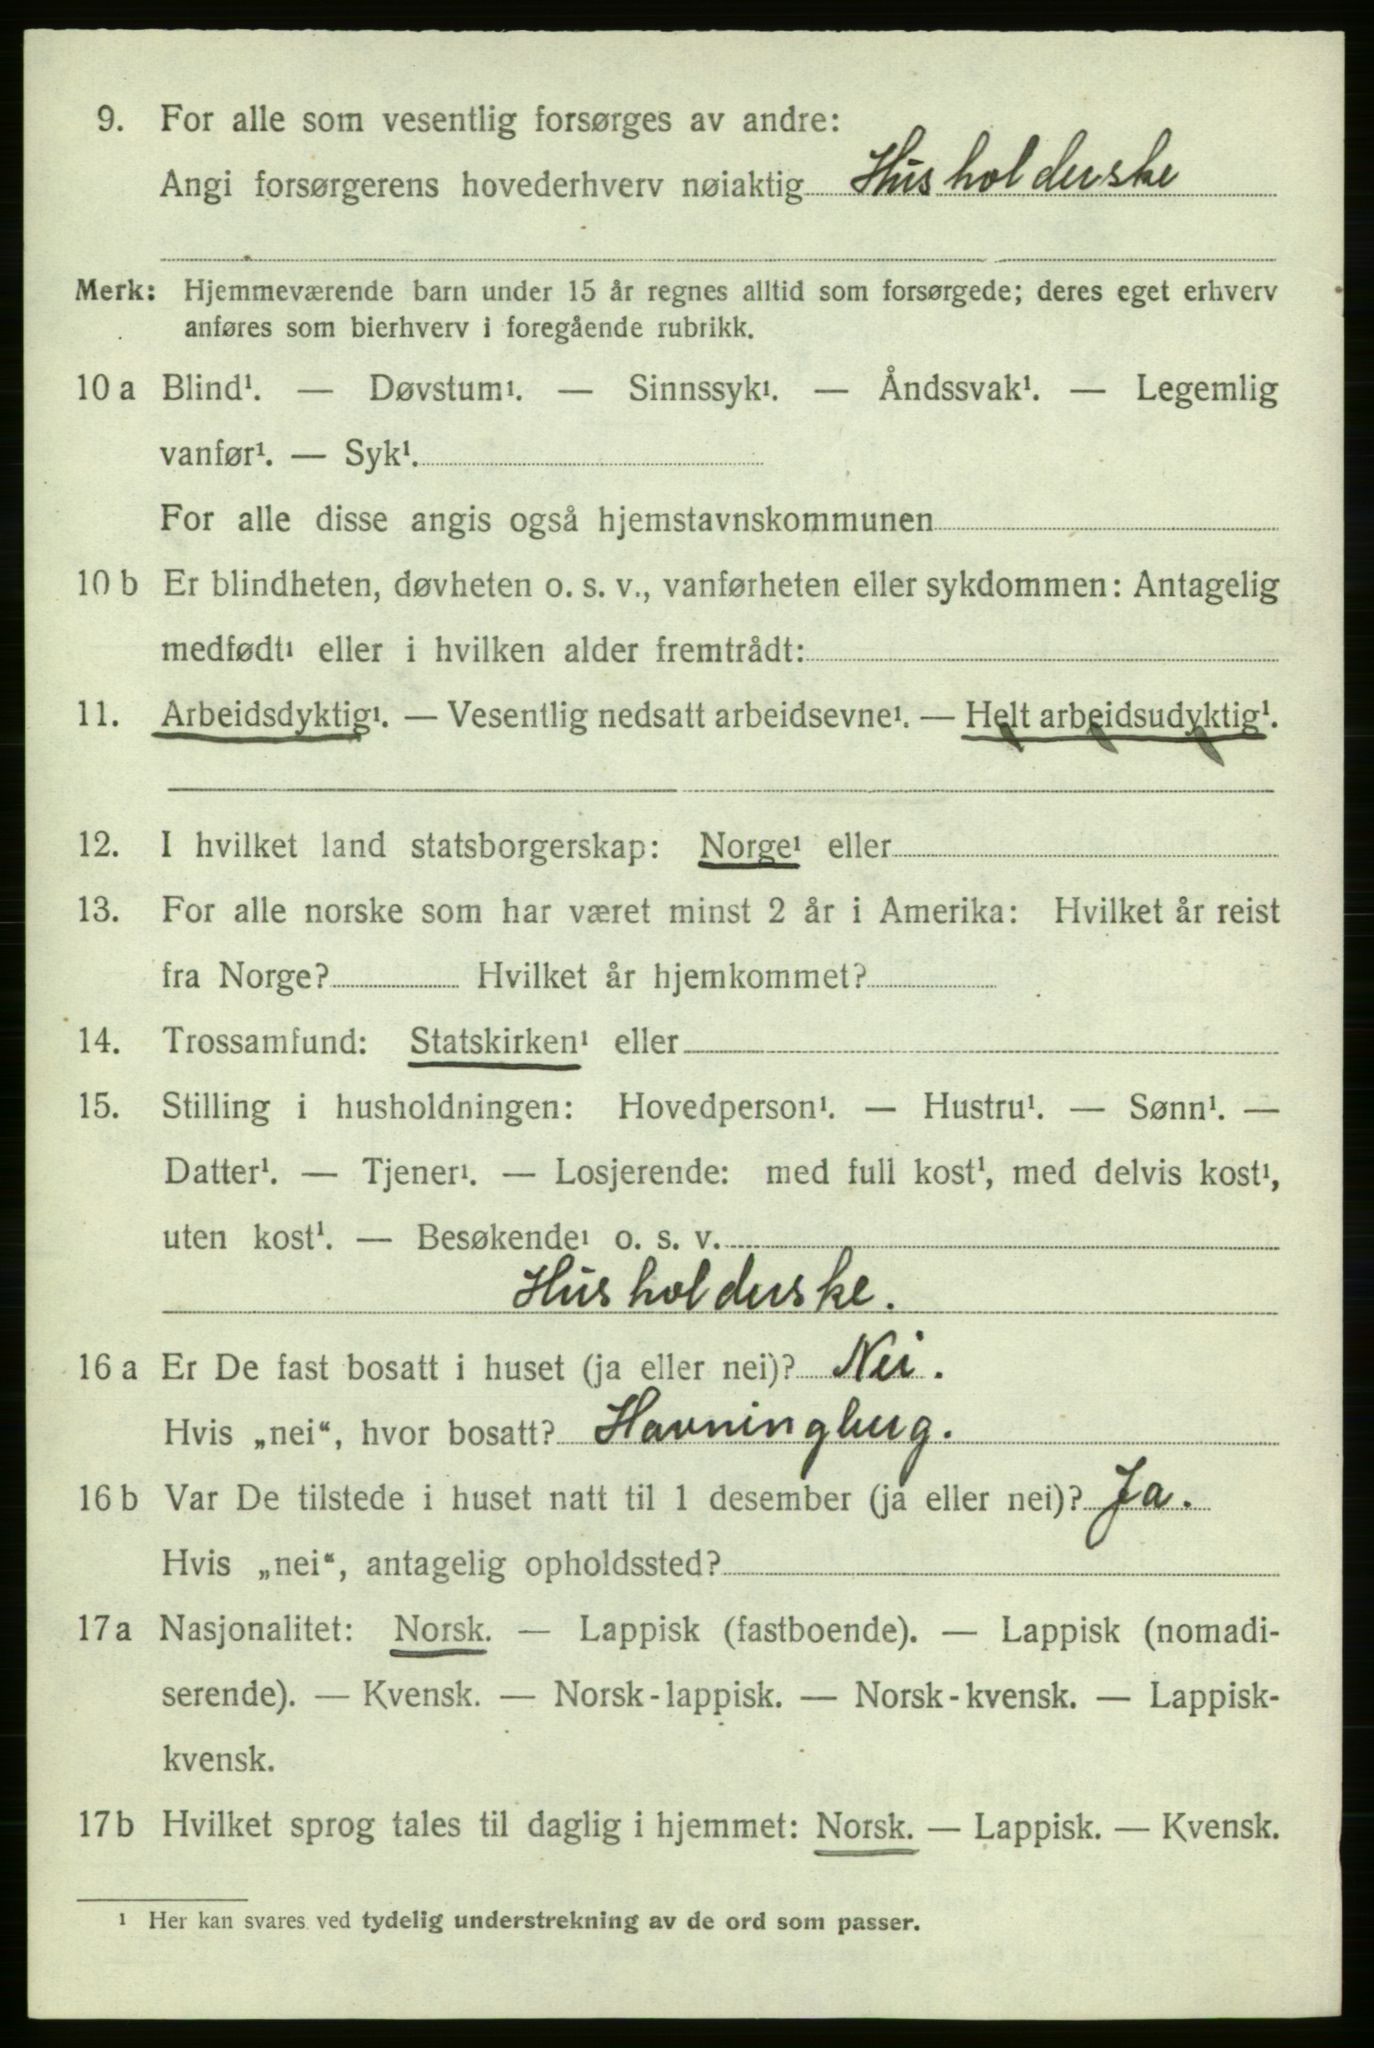 9. For alle som vesentlig forsørges av andre:
Angi forsørgerens hovederhverv nøiaktig Husholderske
Merk: Hjemmeværende barn under 15 år regnes alltid som forsørgede; deres eget erhverv
anføres som bierhverv i foregående rubrikk.
10 a Blind¹. — Døvstum¹. — Sinnssyk¹. — Åndssvak¹. — Legemlig
vanfør¹. — Syk¹.
For alle disse angis også hjemstavnskommunen
10 b Er blindheten, døvheten o. s. v., vanførheten eller sykdommen: Antagelig
medfødt¹ eller i hvilken alder fremtrådt:
11. Arbeidsdyktig¹. — Vesentlig nedsatt arbeidsevne¹. — Helt arbeidsudyktig¹.
12. I hvilket land statsborgerskap: Norge¹ eller
13. For alle norske som har været minst 2 år i Amerika: Hvilket år reist
fra Norge? Hvilket år hjemkommet?
14. Trossamfund: Statskirken¹ eller
15. Stilling i husholdningen: Hovedperson¹. — Hustru¹. — Sønn¹. —
Datter¹. — Tjener¹. — Losjerende: med full kost¹, med delvis kost¹,
uten kost¹. — Besøkende¹ o. s. v.
Husholderske.
16 a Er De fast bosatt i huset (ja eller nei)? Nei.
Hvis „nei“, hvor bosatt? Havningberg.
16 b Var De tilstede i huset natt til 1 desember (ja eller nei)? Ja.
Hvis „nei“, antagelig opholdssted?
17 a Nasjonalitet: Norsk. — Lappisk (fastboende). — Lappisk (nomadi-
serende). — Kvensk. — Norsk-lappisk. — Norsk-kvensk. — Lappisk-
kvensk.
17 b Hvilket sprog tales til daglig i hjemmet: Norsk. — Lappisk. — Kvensk.
¹ Her kan svares ved tydelig understrekning av de ord som passer.